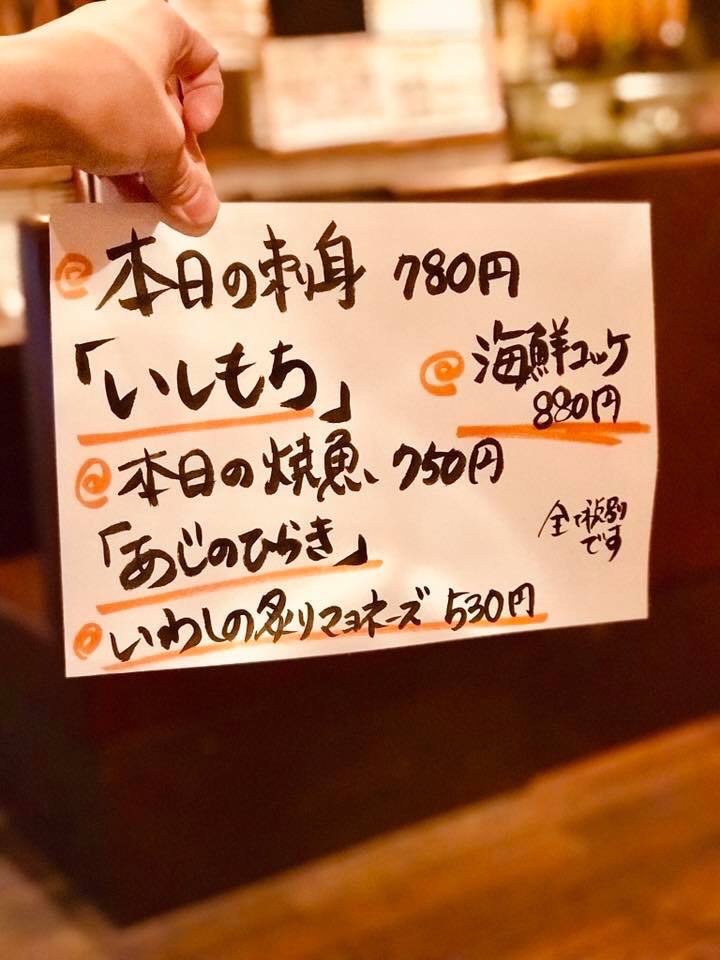 @ 本日の刺身 780円
「いしもち」
@ 海鮮ユッケ
880円
@ 本日の焼魚 750円
「あじのひらき」
全て税別
です
@ いわしの炙りマヨネーズ 530円